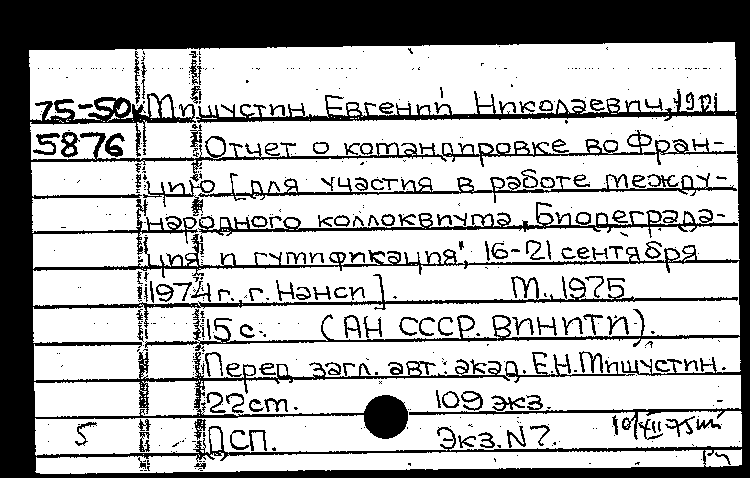 75-50к Мишустин, Евгений Николаевич, 1901
5876 Отчет о командировке во Фран-
цию [для участия в работе между-
народного коллоквиума „Биодеграда-
ция и гумификация", 16-21 сентября
1974 г., г. Нанси]. М., 1975.
15 с. (АН СССР. ВИНИТИ).
Перед загл. авт.: акад. Е.Н. Мишустин.
22 ст. 109 экз.
5 ДСП. Экз. N 7. 10/XII-75